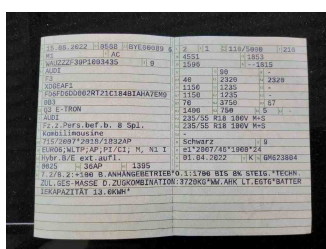 15.08.2022 0588 BYE00089 6
M1 AC
WAUZZZF39P1093435 9
AUDI
F3
XDGEAF1
FD6FD6DO002RT21C184BIAHA7EM0
0B3
Q3 E-TRON
AUDI
Fz.z.Pers.bef.b. 8 Spl.
Kombilimousine
715/2007*2018/1832AP
EURO6;WLTP;AP;PI/CI; M, N1 I
Hybr.B/E ext.aufl.
0025 36AP 1395
2 1 110/5000 210
4551 1853
1596 --1815
90 -
40 2320 2320
1150 1235 -
1150 1235 -
70 3750 57
1400 750 5 -
235/55 R18 100V M+S
235/55 R18 100V M+S
-
Schwarz 9
e1*2007/46*1900*24
01.04.2022 K GM623804
7.2/5.2:+100 B.ANHÄNGEBETRIEB*O.1:1700 BIS 8% STEIG.*TECHN.
ZUL.GES-MASSE D.ZUGKOMBINATION:3720KG*WW.AHK LT.EGTG*BATTER
IEKAPAZITÄT 13.0KWH*